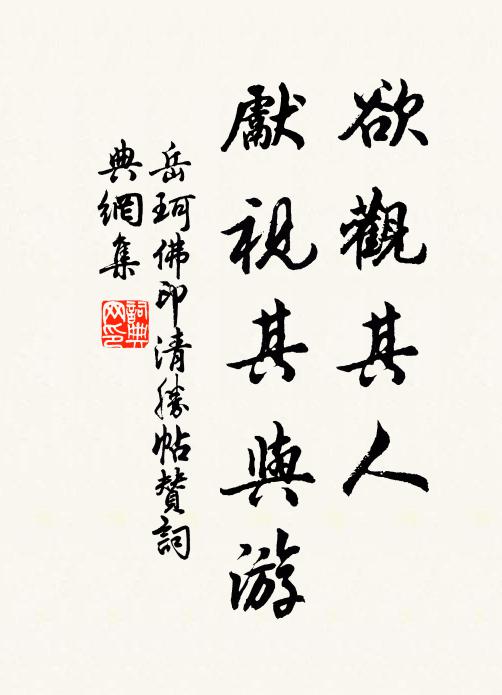 欲觀其人
獻視其與游
岳珂佛印清勝帖贊詞
典網集
詞典
网印